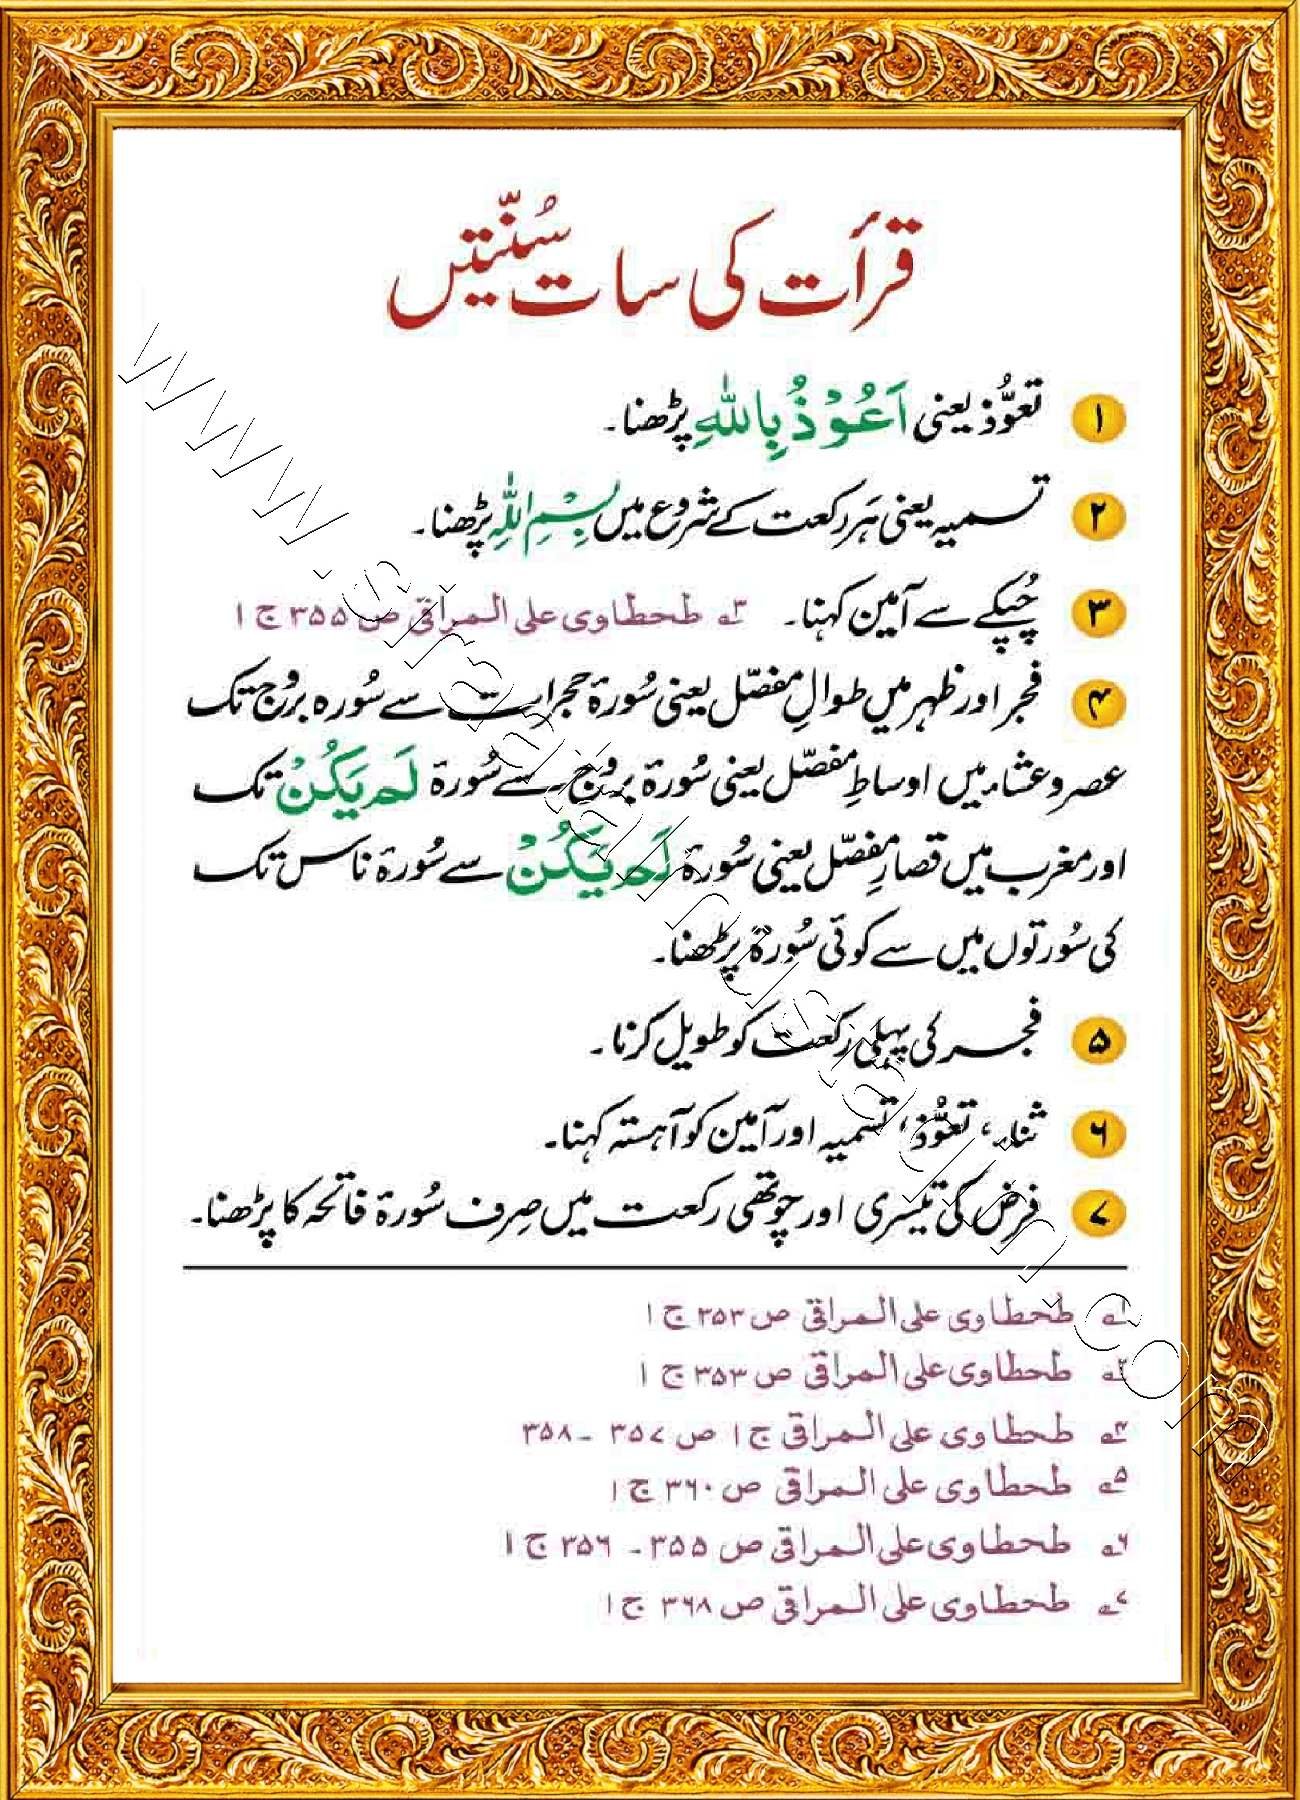 قرأت کی سات سُنّتیں
۱ تعوُّذ یعنی اَعُوْذُ بِاللّٰهِ پڑھنا۔
۲ تسمیہ یعنی ہَر رکعت کے شروع میں بِسْمِ اللّٰهِ پڑھنا۔
۳ چُپکے سے آمین کہنا۔ ۳ے طحطاوی علی المراقی ص ۳۵۵ ج ۱
۴ فجر اور ظہر میں طوالِ مفصّل یعنی سُورۃ حجرات سے سُورہ بروج تک
عصر و عشاء میں اوساطِ مفصّل یعنی سُورۃ بروج سے سُورۃ لَمْ یَکُنْ تک
اور مغرب میں قصارِ مفصّل یعنی سُورۃ لَمْ یَکُنْ سے سُورۃ ناس تک
کی سُورتوں میں سے کوئی سُورۃ پڑھنا۔
۵ فجر کی پہلی رکعت کو طویل کرنا۔
۶ ثناء، تعوُّذ، تسمیہ اور آمین کو آہستہ کہنا۔
۷ فرض کی تیسری اور چوتھی رکعت میں صِرف سُورۃ فاتحہ کا پڑھنا۔
۱ے طحطاوی علی المراقی ص ۳۵۳ ج ۱
۲ے طحطاوی علی المراقی ص ۳۵۳ ج ۱
۴ے طحطاوی علی المراقی ج ۱ ص ۳۵۷ - ۳۵۸
۵ے طحطاوی علی المراقی ص ۳۶۰ ج ۱
۶ے طحطاوی علی المراقی ص ۳۵۵ - ۳۵۶ ج ۱
۷ے طحطاوی علی المراقی ص ۳۶۸ ج ۱